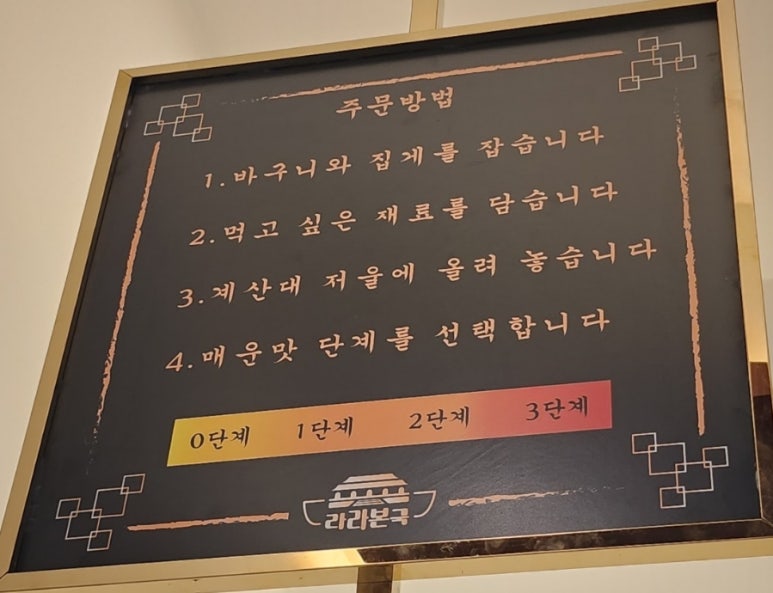 주문방법
1.바구니와 집게를 잡습니다
2.먹고 싶은 재료를 담습니다
3.계산대 저울에 올려 놓습니다
4.매운맛 단계를 선택합니다
0단계 1단계 2단계 3단계
라라본국